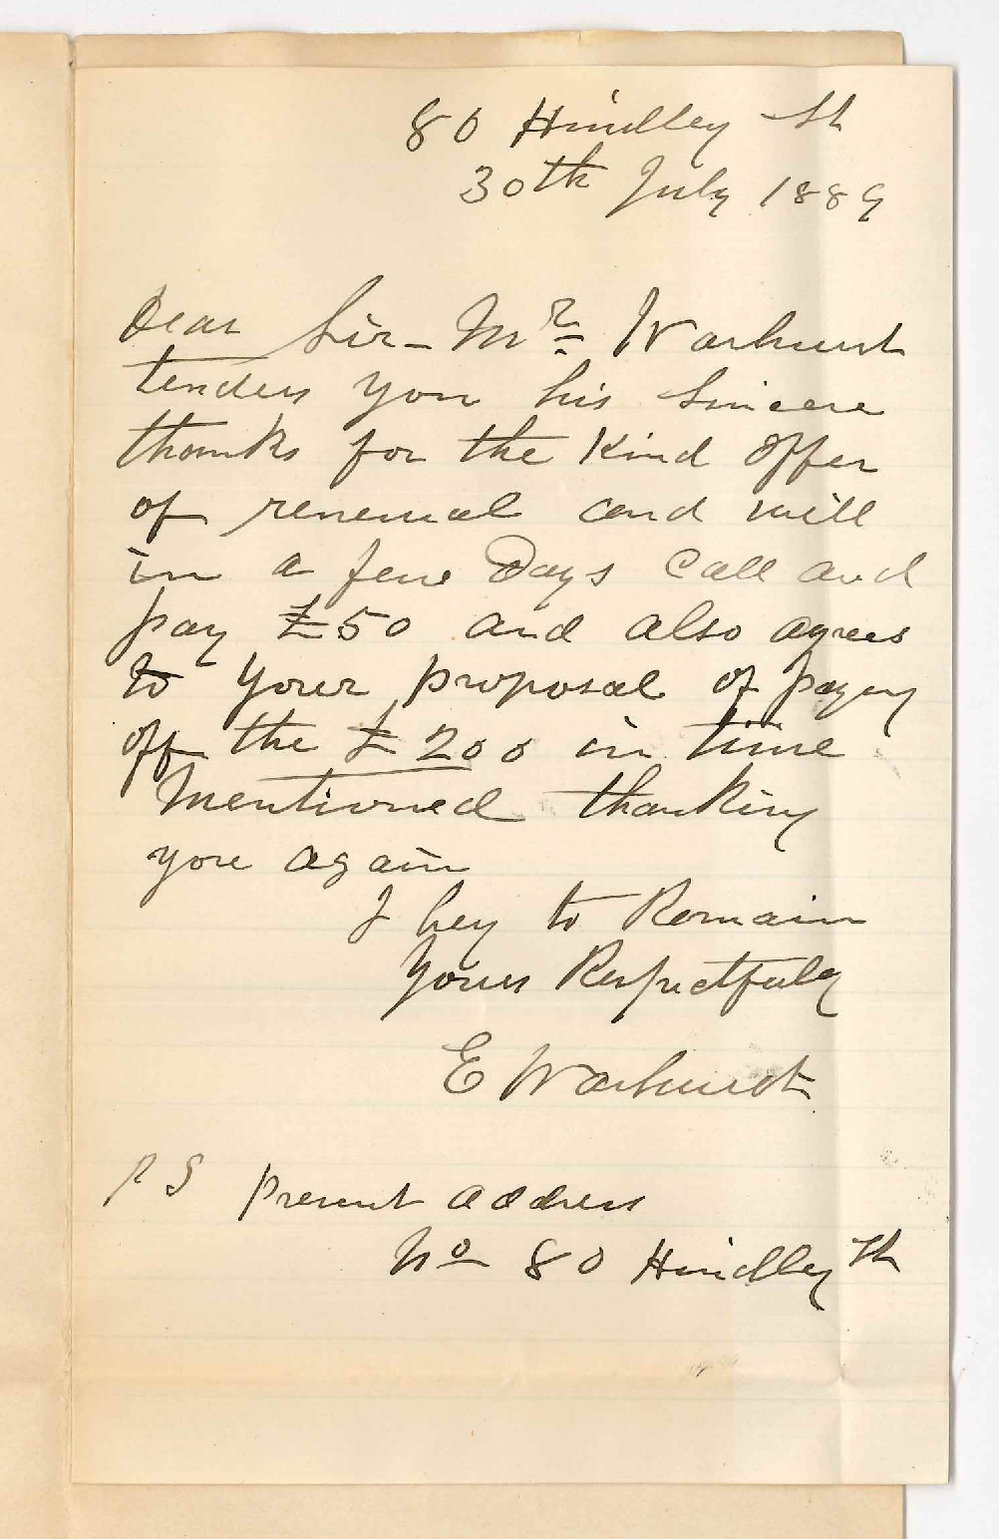 80 Hindley St
30th July 1889
Dear Sir - Mr Warhurst
tenders you his Sincere
thanks for the Kind Offer
of renewal and will
in a few Days Call and
pay £50 and also agrees
to your proposal of payeng
off the £200 in time
Mentioned thanking
you again
I beg to Remain
Yours Respectfuly
E Warhurst
PS present address
No 80 Hindley St